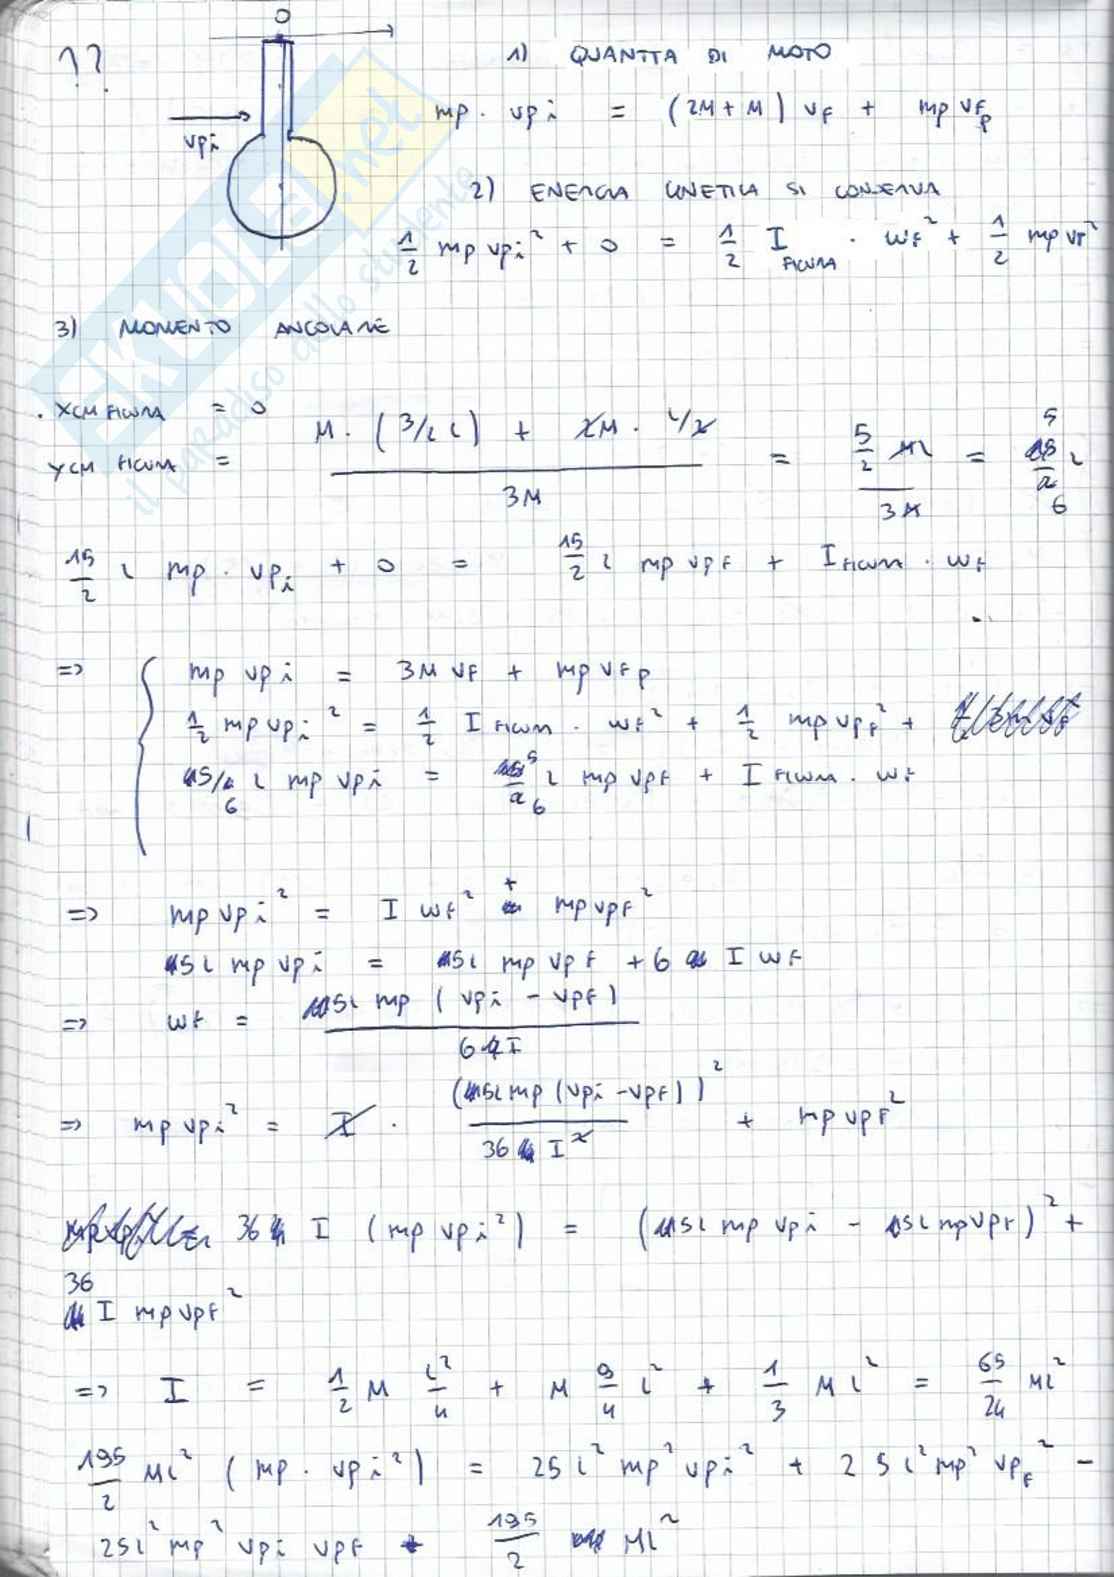 ??
O
1) QUANTTA DI MOTO
vpi
mp · vpi = (2M + M) vf + mp vfp
2) ENERGIA CINETICA SI CONSERVA
1/2 mp vpi² + 0 = 1/2 I FIGURA · wf² + 1/2 mp vf²
3) MOMENTO ANGOLARE
. XCM FIGURA = 0
YCM FIGURA = (M · (3/2 l) + 2M · l/2) / 3M = (5/2 Ml) / 3M = 5/6 l
15/2 l mp · vpi + 0 = 15/2 l mp vpf + I FIGURA · wf
=> { mp vpi = 3M vf + mp vfp
1/2 mp vpi² = 1/2 I FIGURA · wf² + 1/2 mp vpf² +
5/6 l mp vpi = 5/6 l mp vpf + I FIGURA · wf
=> mp vpi² = I wf² + mp vpf²
5l mp vpi = 5l mp vpf + 6 I wf
=> wf = 5l mp (vpi - vpf) / 6 I
=> mp vpi² = I · (5l mp (vpi - vpf))² / 36 I² + mp vpf²
36 I (mp vpi²) = (5l mp vpi - 5l mp vpf)² +
36 I mp vpf²
=> I = 1/2 M l²/4 + M 9/4 l² + 1/3 M l² = 65/24 Ml²
195/2 Ml² (mp · vpi²) = 25 l² mp² vpi² + 25 l² mp² vpf² -
25l² mp² vpi vpf + 195/2 Ml²
EKUOLE.net
il paradiso dello studente